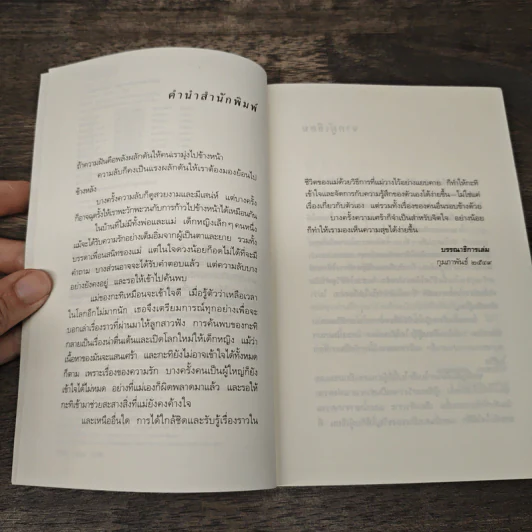 คำนำสำนักพิมพ์
ถ้าความฝันคือพลังผลักดันให้คนเรามุ่งไปข้างหน้า
ความลับก็คงเป็นแรงผลักดันให้เราต้องมองย้อนไป
ข้างหลัง
บางครั้งความลับก็ดูสวยงามและมีเสน่ห์ แต่บางครั้ง
ก็อาจฉุดรั้งให้เราพะวักพะวนกับการก้าวไปข้างหน้าได้เหมือนกัน
ในบ้านที่ไม่มีทั้งพ่อและแม่ เด็กหญิงเล็กๆ คนหนึ่ง
แม้จะได้รับความรักอย่างเต็มอิ่มจากผู้เป็นตาและยาย รวมทั้ง
บรรดาเพื่อนสนิทของแม่ แต่ในใจดวงน้อยก็อดไม่ได้ที่จะมี
คำถาม บางส่วนอาจจะได้รับคำตอบแล้ว แต่ความลับบาง
อย่างยังคงอยู่ และรอให้เข้าไปค้นพบ
แม่ของกะทิเหมือนจะเข้าใจดี เมื่อรู้ตัวว่าเหลือเวลา
ในโลกอีกไม่มากนัก เธอจึงเตรียมการณ์ทุกอย่างเพื่อจะ
บอกเล่าเรื่องราวที่ผ่านมาให้ลูกสาวฟัง การค้นพบของกะทิ
กลายเป็นเรื่องน่าตื่นเต้นและเปิดโลกใหม่ให้เด็กหญิง แม้ว่า
เนื้อหาของมันจะแสนเศร้า และกะทิยังไม่อาจเข้าใจได้ทั้งหมด
ก็ตาม เพราะเรื่องของความรัก บางครั้งคนเป็นผู้ใหญ่ก็ยัง
เข้าใจได้ไม่หมด อย่างที่แม่เองก็ผิดพลาดมาแล้ว และรอให้
กะทิเข้ามาช่วยสะสางสิ่งที่แม่ยังคงค้างใจ
และเหนืออื่นใด การได้ใกล้ชิดและรับรู้เรื่องราวใน
ชีวิตของแม่ด้วยวิธีการที่แม่วางไว้อย่างแยบคาย ก็ทำให้กะทิ
เข้าใจและจัดการกับความรู้สึกของตัวเองได้ง่ายขึ้น—ไม่ใช่แค่
เรื่องเกี่ยวกับตัวเอง แต่รวมทั้งเรื่องของคนอื่นรอบข้างด้วย
บางครั้งความเศร้าก็จำเป็นสำหรับจิตใจ อย่างน้อย
ก็ทำให้เรามองเห็นความสุขได้ง่ายขึ้น
บรรณาธิการเล่ม
กุมภาพันธ์ ๒๕๔๙